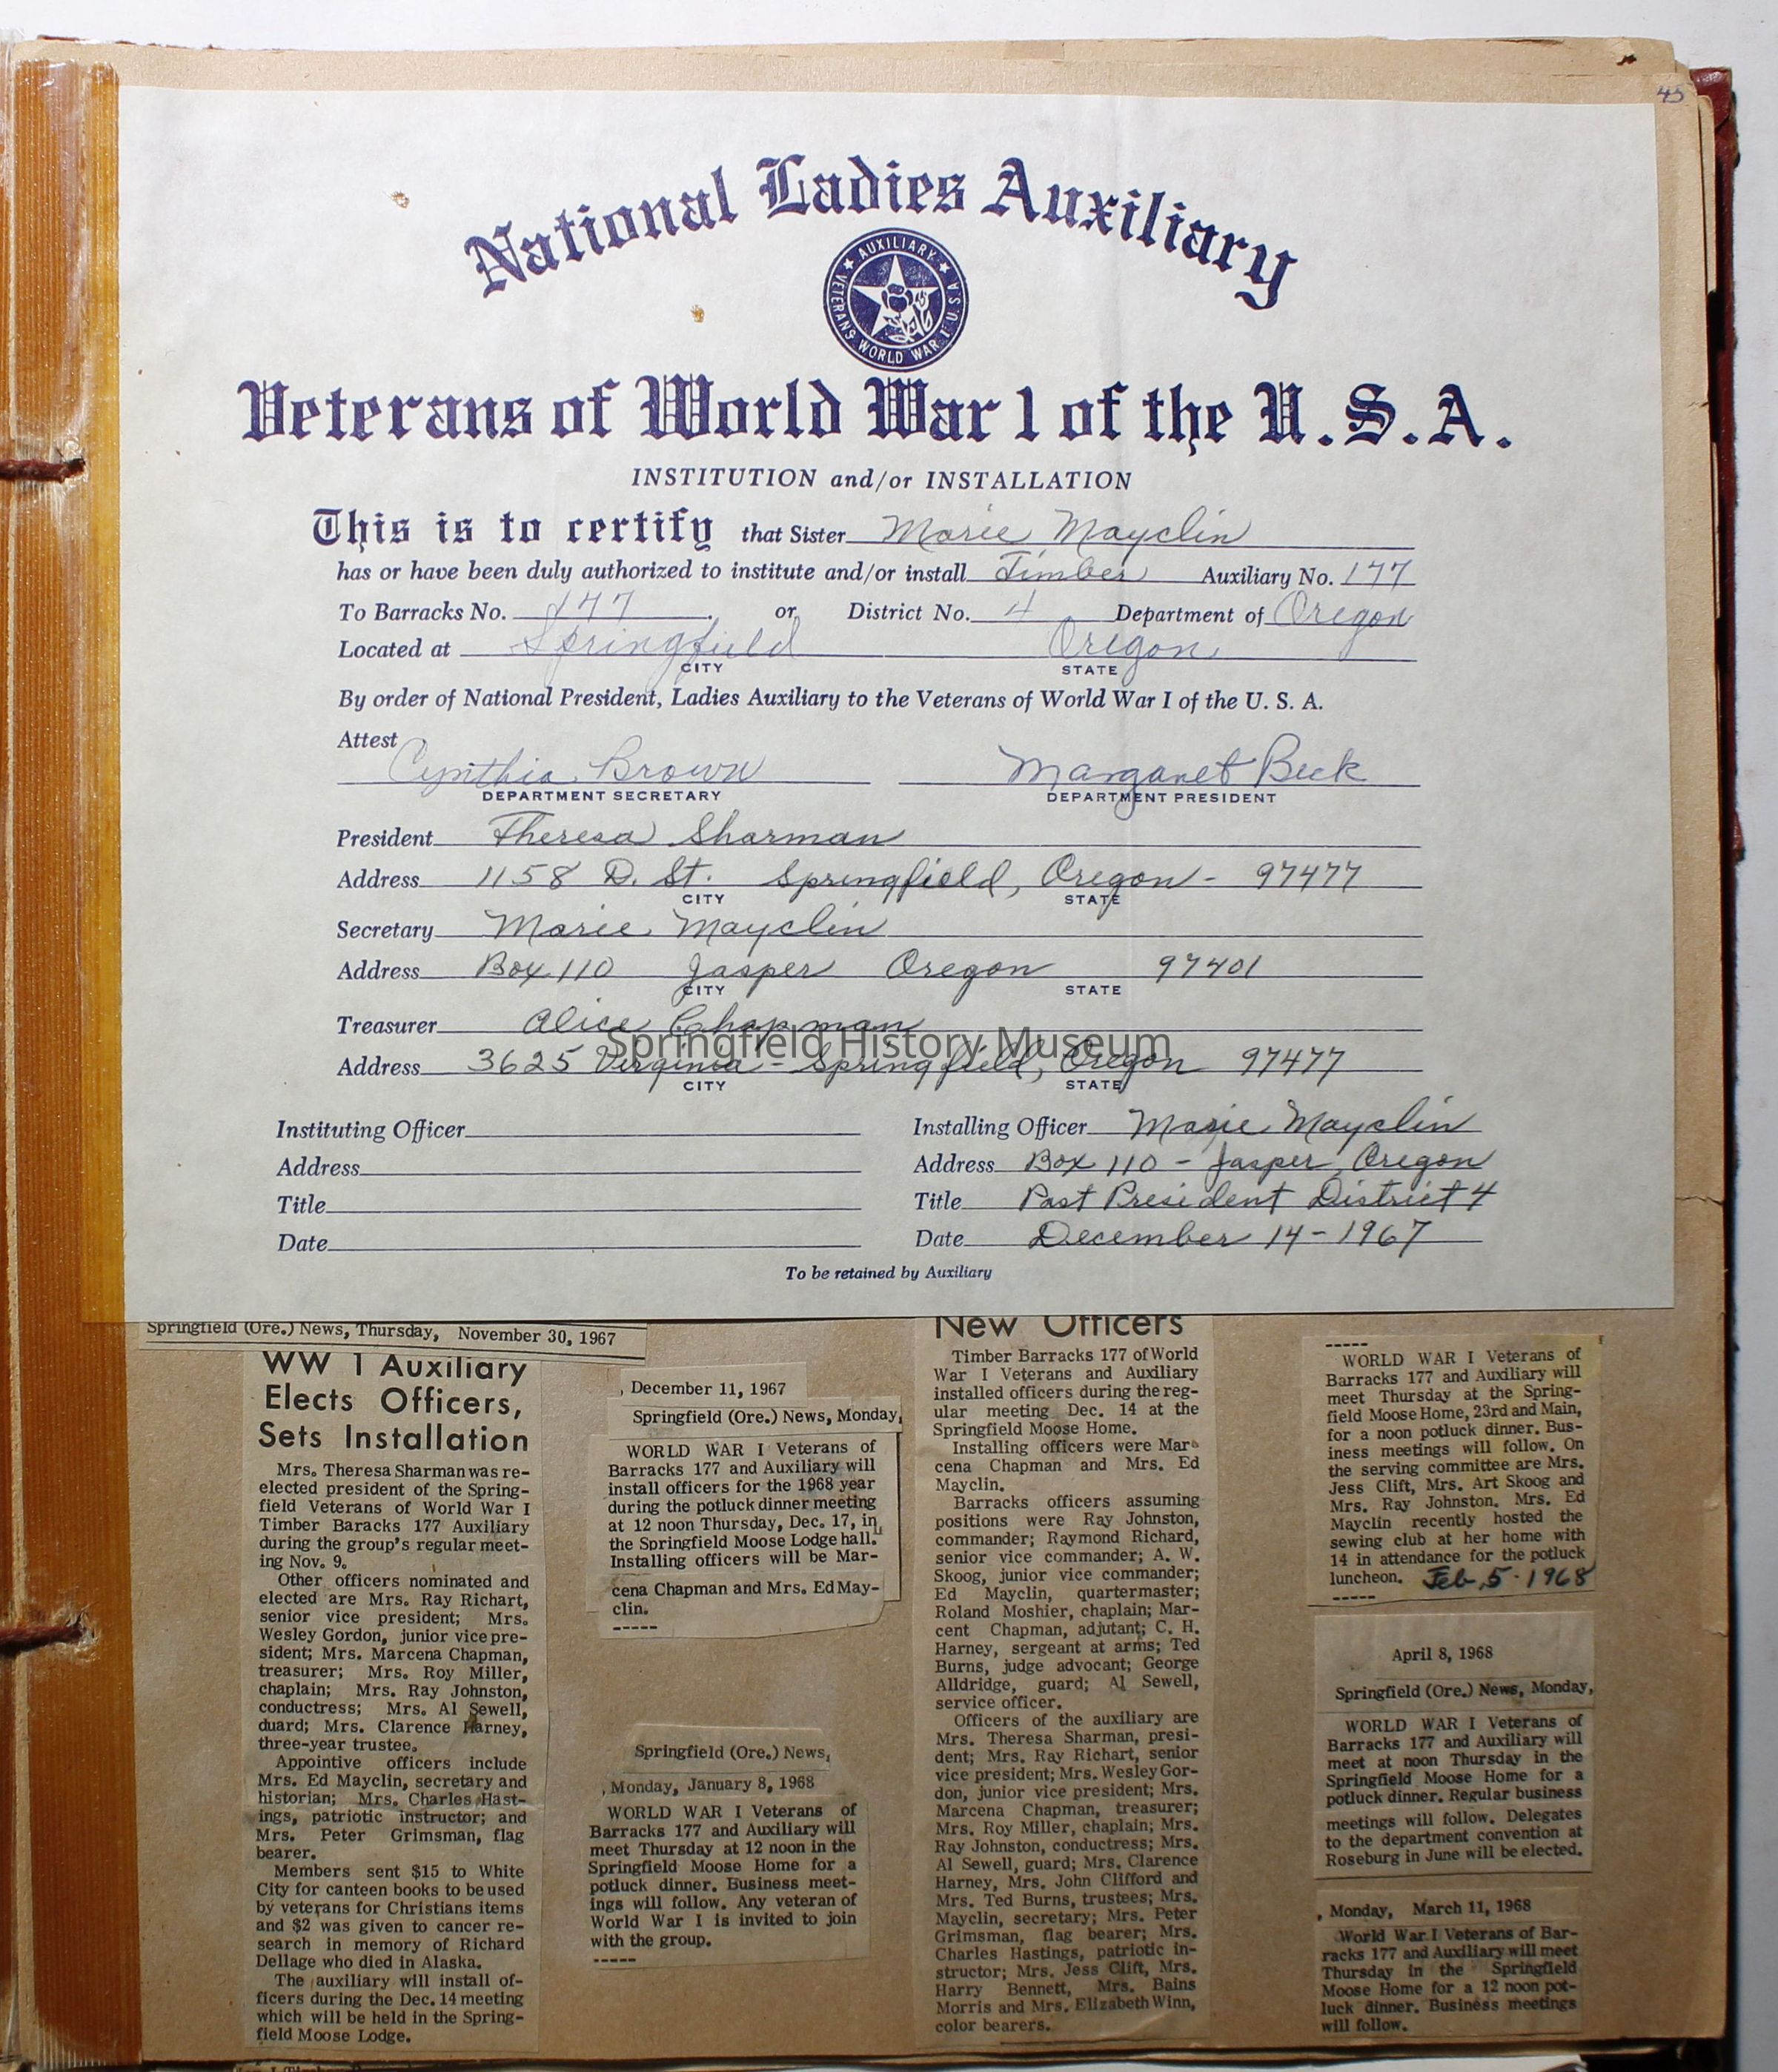 45
National Ladies Auxiliary
★ AUXILIARY ★
VETERANS WORLD WAR I U.S.A.
Veterans of World War 1 of the U.S.A.
INSTITUTION and/or INSTALLATION
This is to certify that Sister Marie Mayclin
has or have been duly authorized to institute and/or install Timber Auxiliary No. 177
To Barracks No. 177 or District No. 4 Department of Oregon
Located at Springfield Oregon
CITY STATE
By order of National President, Ladies Auxiliary to the Veterans of World War I of the U. S. A.
Attest
Cynthia Brown Margaret Beck
DEPARTMENT SECRETARY DEPARTMENT PRESIDENT
President Theresa Sharman
Address 1158 D. St. Springfield, Oregon - 97477
CITY STATE
Secretary Marie Mayclin
Address Box 110 Jasper Oregon 97401
CITY STATE
Treasurer Alice Chapman
Springfield History Museum
Address 3625 Virginia - Springfield, Oregon 97477
CITY STATE
Instituting Officer
Address
Title
Date
Installing Officer Marie Mayclin
Address Box 110 - Jasper, Oregon
Title Past President District 4
Date December 14-1967
To be retained by Auxiliary
Springfield (Ore.) News, Thursday, November 30, 1967
WW 1 Auxiliary
Elects Officers,
Sets Installation
Mrs. Theresa Sharman was re-
elected president of the Spring-
field Veterans of World War I
Timber Baracks 177 Auxiliary
during the group's regular meet-
ing Nov. 9.
Other officers nominated and
elected are Mrs. Ray Richart,
senior vice president; Mrs.
Wesley Gordon, junior vice pre-
sident; Mrs. Marcena Chapman,
treasurer; Mrs. Roy Miller,
chaplain; Mrs. Ray Johnston,
conductress; Mrs. Al Sewell,
duard; Mrs. Clarence Harney,
three-year trustee.
Appointive officers include
Mrs. Ed Mayclin, secretary and
historian; Mrs. Charles Hast-
ings, patriotic instructor; and
Mrs. Peter Grimsman, flag
bearer.
Members sent $15 to White
City for canteen books to be used
by veterans for Christians items
and $2 was given to cancer re-
search in memory of Richard
Dellage who died in Alaska.
The auxiliary will install of-
ficers during the Dec. 14 meeting
which will be held in the Spring-
field Moose Lodge.
, December 11, 1967
Springfield (Ore.) News, Monday,
WORLD WAR I Veterans of
Barracks 177 and Auxiliary will
install officers for the 1968 year
during the potluck dinner meeting
at 12 noon Thursday, Dec. 17, in
the Springfield Moose Lodge hall.
Installing officers will be Mar-
cena Chapman and Mrs. Ed May-
clin.
-----
Springfield (Ore.) News,
, Monday, January 8, 1968
WORLD WAR I Veterans of
Barracks 177 and Auxiliary will
meet Thursday at 12 noon in the
Springfield Moose Home for a
potluck dinner. Business meet-
ings will follow. Any veteran of
World War I is invited to join
with the group.
-----
New Officers
Timber Barracks 177 of World
War I Veterans and Auxiliary
installed officers during the reg-
ular meeting Dec. 14 at the
Springfield Moose Home.
Installing officers were Mar-
cena Chapman and Mrs. Ed
Mayclin.
Barracks officers assuming
positions were Ray Johnston,
commander; Raymond Richard,
senior vice commander; A. W.
Skoog, junior vice commander;
Ed Mayclin, quartermaster;
Roland Moshier, chaplain; Mar-
cent Chapman, adjutant; C. H.
Harney, sergeant at arms; Ted
Burns, judge advocant; George
Alldridge, guard; Al Sewell,
service officer.
Officers of the auxiliary are
Mrs. Theresa Sharman, presi-
dent; Mrs. Ray Richart, senior
vice president; Mrs. Wesley Gor-
don, junior vice president; Mrs.
Marcena Chapman, treasurer;
Mrs. Roy Miller, chaplain; Mrs.
Ray Johnston, conductress; Mrs.
Al Sewell, guard; Mrs. Clarence
Harney, Mrs. John Clifford and
Mrs. Ted Burns, trustees; Mrs.
Mayclin, secretary; Mrs. Peter
Grimsman, flag bearer; Mrs.
Charles Hastings, patriotic in-
structor; Mrs. Jess Clift, Mrs.
Harry Bennett, Mrs. Bains
Morris and Mrs. Elizabeth Winn,
color bearers.
-----
WORLD WAR I Veterans of
Barracks 177 and Auxiliary will
meet Thursday at the Spring-
field Moose Home, 23rd and Main,
for a noon potluck dinner. Bus-
iness meetings will follow. On
the serving committee are Mrs.
Jess Clift, Mrs. Art Skoog and
Mrs. Ray Johnston. Mrs. Ed
Mayclin recently hosted the
sewing club at her home with
14 in attendance for the potluck
luncheon. Feb. 5 - 1968
-----
April 8, 1968
Springfield (Ore.) News, Monday,
WORLD WAR I Veterans of
Barracks 177 and Auxiliary will
meet at noon Thursday in the
Springfield Moose Home for a
potluck dinner. Regular business
meetings will follow. Delegates
to the department convention at
Roseburg in June will be elected.
, Monday, March 11, 1968
World War I Veterans of Bar-
racks 177 and Auxiliary will meet
Thursday in the Springfield
Moose Home for a 12 noon pot-
luck dinner. Business meetings
will follow.